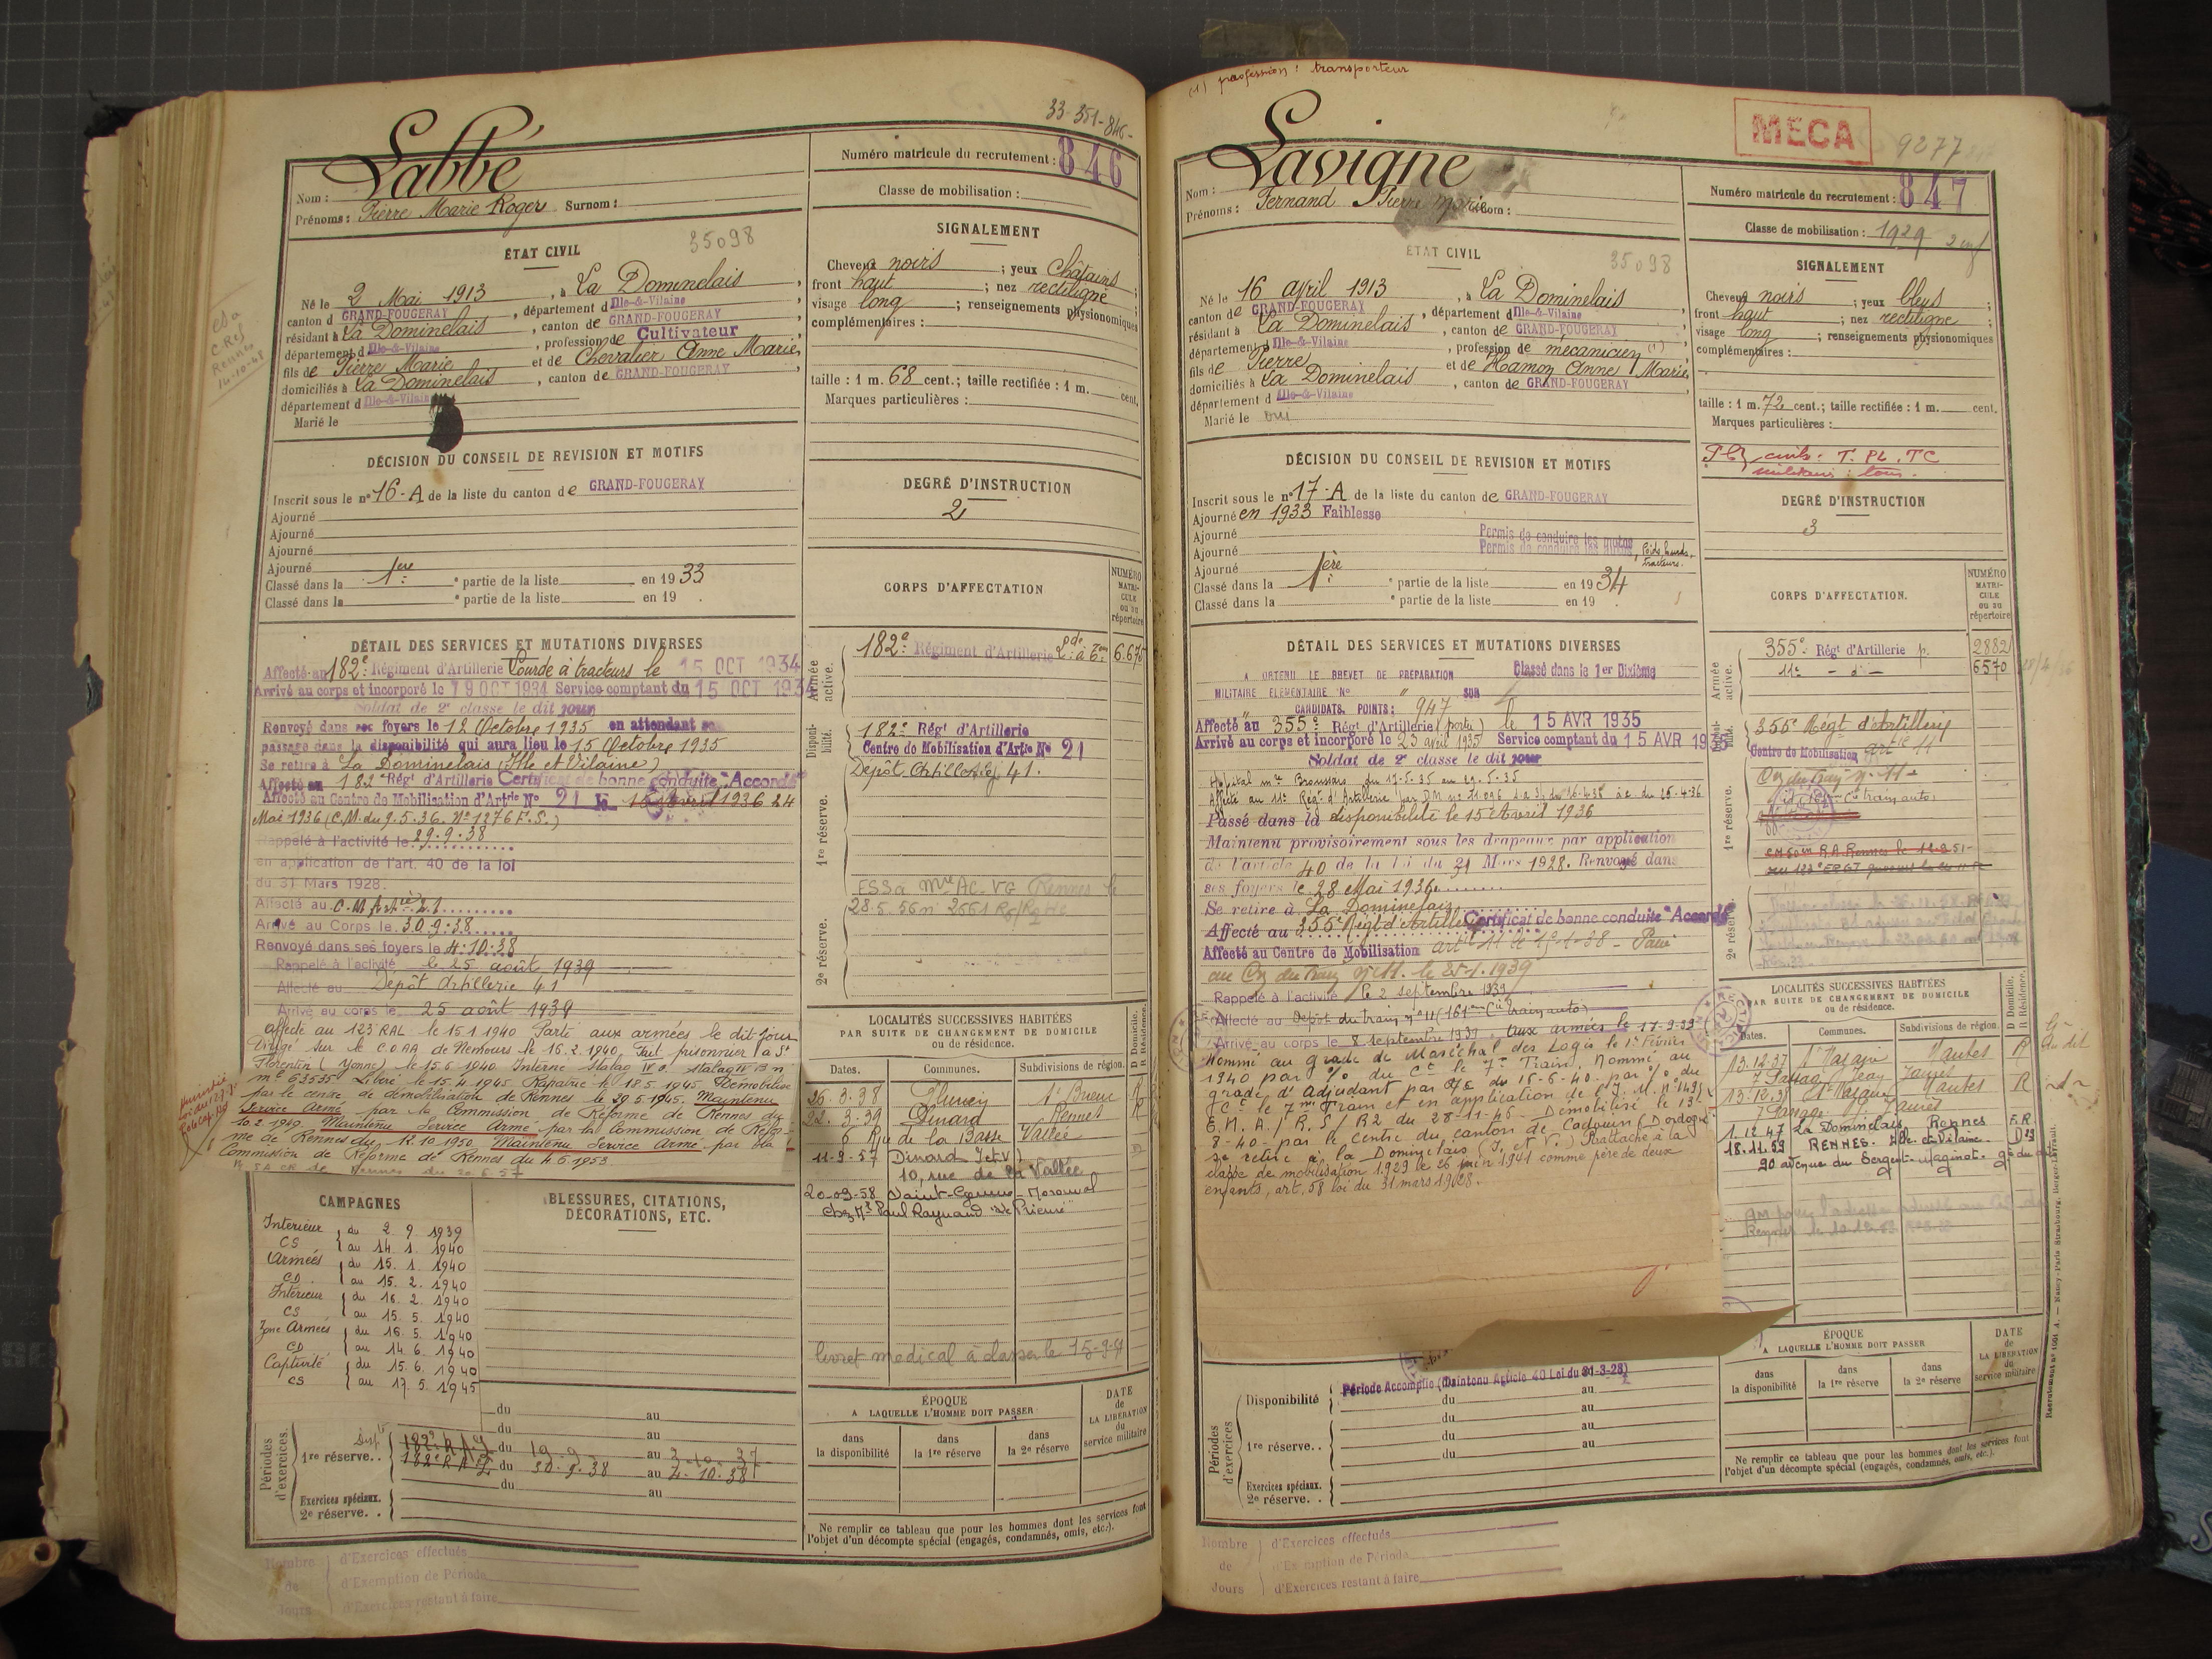 33-351-846-
Labbé
Nom :
Prénoms : Pierre Marie Roger Surnom :
Numéro matricule du recrutement : 846
Classe de mobilisation :
ÉTAT CIVIL
35098
Né le 2 Mai 1913, à La Dominelais,
canton d GRAND-FOUGERAY, département d Ille-&-Vilaine
résidant à La Dominelais, canton de GRAND-FOUGERAY
département d Ille-&-Vilaine, profession de Cultivateur
fils de Pierre Marie et de Chevalier Anne Marie,
domiciliés à La Dominelais, canton de GRAND-FOUGERAY
département d Ille-&-Vilaine
Marié le
SIGNALEMENT
Cheveux noirs ; yeux Châtains ;
front haut ; nez rectiligne ;
visage long ; renseignements physionomiques
complémentaires :
taille : 1 m. 68 cent.; taille rectifiée : 1 m. cent.
Marques particulières :
DÉCISION DU CONSEIL DE REVISION ET MOTIFS
Inscrit sous le n° 16-A de la liste du canton de GRAND-FOUGERAY
Ajourné
Ajourné
Ajourné
Ajourné
Classé dans la 1ère partie de la liste en 1933
Classé dans la e partie de la liste en 19 .
DEGRÉ D'INSTRUCTION
2
CORPS D'AFFECTATION
NUMÉRO MATRICULE ou au répertoire
DÉTAIL DES SERVICES ET MUTATIONS DIVERSES
Affecté au 182e Régiment d'Artillerie Lourde à tracteurs le 15 OCT 1934
Arrivé au corps et incorporé le 19 OCT 1934 Service comptant du 15 OCT 1934
Soldat de 2e classe le dit jour
Renvoyé dans ses foyers le 12 Octobre 1935 en attendant son
passage dans la disponibilité qui aura lieu le 15 Octobre 1935
Se retire à La Dominelais (Ille et Vilaine)
Affecté au 182e Régt d'Artillerie Certificat de bonne conduite "Accordé"
Affecté au Centre de Mobilisation d'Artie N° 21 le
Mai 1936 (C.M. du 9.5.36. N° 1276 F.S.)
Rappelé à l'activité le 29.9.38
en application de l'art. 40 de la loi
du 31 Mars 1928.
Affecté au C.M. Artie 21
Arrivé au Corps le 30.9.38
Renvoyé dans ses foyers le 4.10.38
Rappelé à l'activité le 25 août 1939
Affecté au Depôt Artillerie 41
Arrivé au corps le 25 août 1939
affecté au 123 RAL le 15.1.1940 Parti aux armées le dit jour
Dirigé sur le C.O.A.A de Nemours le 16.2.1940. Fait prisonnier à St
Florentin (Yonne) le 15.6.1940 Interné Stalag IV B n
me 63535 Libéré le 15.4.1945 Rapatrié le 18.5.1945 Démobilisé
par le centre de démobilisation de Rennes le 29.5.1945. Maintenu
Service Armé par la Commission de Réforme de Rennes du
10.2.1949. Maintenu Service Armé par la Commission de Réfor-
me de Rennes du 12.10.1950. Maintenu Service Armé par la
Commission de Réforme de Rennes du 4.6.1953
Armée active.
182e Régiment d'Artillerie
Disponibilité.
182e Régt d'Artillerie
Centre de Mobilisation d'Artie N° 21
Dépôt Artillerie 41.
1re réserve.
2e réserve.
28.5.56 n° 2661
LOCALITÉS SUCCESSIVES HABITÉES
PAR SUITE DE CHANGEMENT DE DOMICILE
ou de résidence.
D Domicile. R Résidence.
Dates. Communes. Subdivisions de région.
26.3.38 St Brieuc R
22.3.39 Dinard Rennes R
6 Rue de la Basse Vallée
11-9-57 Dinard (I et V)
10, rue de la Vallée
20-09-58
livret medical à classer le
CAMPAGNES
Intérieur du 2.9.1939
CS au 14.1.1940
Armées du 15.1.1940
CD au 15.2.1940
Intérieur du 16.2.1940
CS au 15.5.1940
Zone Armées du 16.5.1940
CD au 14.6.1940
Captivité du 15.6.1940
CS au 17.5.1945
BLESSURES, CITATIONS,
DÉCORATIONS, ETC.
Périodes d'exercices.
1re réserve..
du au
du au
du 19.9 au
du 30.9.38 au 4.10.38
du au
Exercices spéciaux.
2e réserve. .
ÉPOQUE
A LAQUELLE L'HOMME DOIT PASSER
dans la disponibilité
dans la 1re réserve
dans la 2e réserve
DATE de LA LIBÉRATION du service militaire
Ne remplir ce tableau que pour les hommes dont les services font
l'objet d'un décompte spécial (engagés, condamnés, omis, etc.).
Nombre de Jours
d'Exercices effectués
d'Exemption de Période
d'Exercices restant à faire
(1) profession : transporteur
MECA
9277
Lavigne
Nom :
Prénoms : Fernand Pierre Marie
Numéro matricule du recrutement : 847
Classe de mobilisation : 1929 2 enf
ÉTAT CIVIL
35098
Né le 16 April 1913, à La Dominelais
canton de GRAND-FOUGERAY, département d Ille-&-Vilaine
résidant à La Dominelais, canton de GRAND-FOUGERAY
département d Ille-&-Vilaine, profession de mécanicien (1),
fils de Pierre et de Hamon Anne Marie,
domiciliés à La Dominelais, canton de GRAND-FOUGERAY
département d Ille-&-Vilaine
Marié le oui
SIGNALEMENT
Cheveux noirs ; yeux bleus ;
front haut ; nez rectiligne ;
visage long ; renseignements physionomiques
complémentaires :
taille : 1 m. 72 cent.; taille rectifiée : 1 m. cent.
Marques particulières :
civils : T. PL. TC
DÉCISION DU CONSEIL DE REVISION ET MOTIFS
Inscrit sous le n° 17-A de la liste du canton de GRAND-FOUGERAY
Ajourné en 1933 Faiblesse
Ajourné
Permis de conduire les motos
Ajourné
Permis de conduire les autos, Poids lourds. tracteurs.
Ajourné
Classé dans la 1ère partie de la liste en 1934
Classé dans la e partie de la liste en 19 .
DEGRÉ D'INSTRUCTION
3
CORPS D'AFFECTATION.
NUMÉRO MATRICULE ou au répertoire
DÉTAIL DES SERVICES ET MUTATIONS DIVERSES
Classé dans le 1er Dixième
A OBTENU LE BREVET DE PRÉPARATION
MILITAIRE ÉLÉMENTAIRE N° " SUR
CANDIDATS. POINTS : 947
Affecté au 355e Régt d'Artillerie (porté) le 15 AVR 1935
Arrivé au corps et incorporé le 23 avril 1935 Service comptant du 15 AVR 1935
Soldat de 2e classe le dit jour
Hôpital mre Broussais du 17-5-35 au
Affecté au 11e Régt d'Artillerie
Passé dans la disponibilité le 15 Avril 1936
Maintenu provisoirement sous les drapeaux par application
de l'article 40 de la loi du 31 Mars 1928. Renvoyé dans
ses foyers le 28 Mai 1936
Se retire à La Dominelais
Affecté au 355 Régt d'Artillerie Certificat de bonne conduite "Accordé"
Affecté au Centre de Mobilisation artie 11
au Cm du Train n° 11. le 25.1.1939
Rappelé à l'activité le 2 septembre 1939
Affecté au Dépôt du train n° 11 (161ème Cie train auto)
Arrivé au corps le 8 septembre 1939. aux armées le 17-9-39
Nommé au grade de Maréchal des Logis le 1er Février
1940 par % du Ct le 7me Train. Nommé au
grade d'Adjudant par O/G du 16-6-40. par % du
Ct le 7me Train et en application de l'I.M. N° 1495
E.M.A / R.S / R2 du 28-11-45 - Démobilisé le 13-
8-40 - par le centre du canton de Cadouin (Dordogne)
se retire à la Dominelais (I. et V.) Rattaché à la
classe de mobilisation 1929 le 26 1941 comme père de deux
enfants, art. 58 loi du 31 mars 1928.
Armée active.
355e Régt d'Artillerie p. 2882
11e - d° - 6570
355e Régt d'Artillerie
Centre de Mobilisation artie 11
Cm du Train n° 11
1re réserve.
2e réserve.
LOCALITÉS SUCCESSIVES HABITÉES
PAR SUITE DE CHANGEMENT DE DOMICILE
ou de résidence.
D Domicile. R Résidence.
Dates. Communes. Subdivisions de région.
13.12.37 St Nazaire Nantes R
7 Passage Jean Jaurès
13.12.38 St Nazaire Nantes R
7 Passage Jaurès
1.12.47 La Dominelais Rennes
18.11.59 RENNES. Ille et Vilaine
20 avenue du Sergent Maginot.
Périodes d'exercices
Disponibilité
Période Accomplie (Maintenu Article 40 Loi du 31-3-28)
du au
du au
1re réserve..
du au
du au
Exercices spéciaux.
2e réserve. .
ÉPOQUE
A LAQUELLE L'HOMME DOIT PASSER
dans la disponibilité
dans la 1re réserve
dans la 2e réserve
DATE de LA LIBÉRATION du service militaire
Ne remplir ce tableau que pour les hommes dont les services font
l'objet d'un décompte spécial (engagés, condamnés, omis, etc.).
Nombre de Jours
d'Exercices effectués
d'Exemption de Période
d'Exercices restant à faire